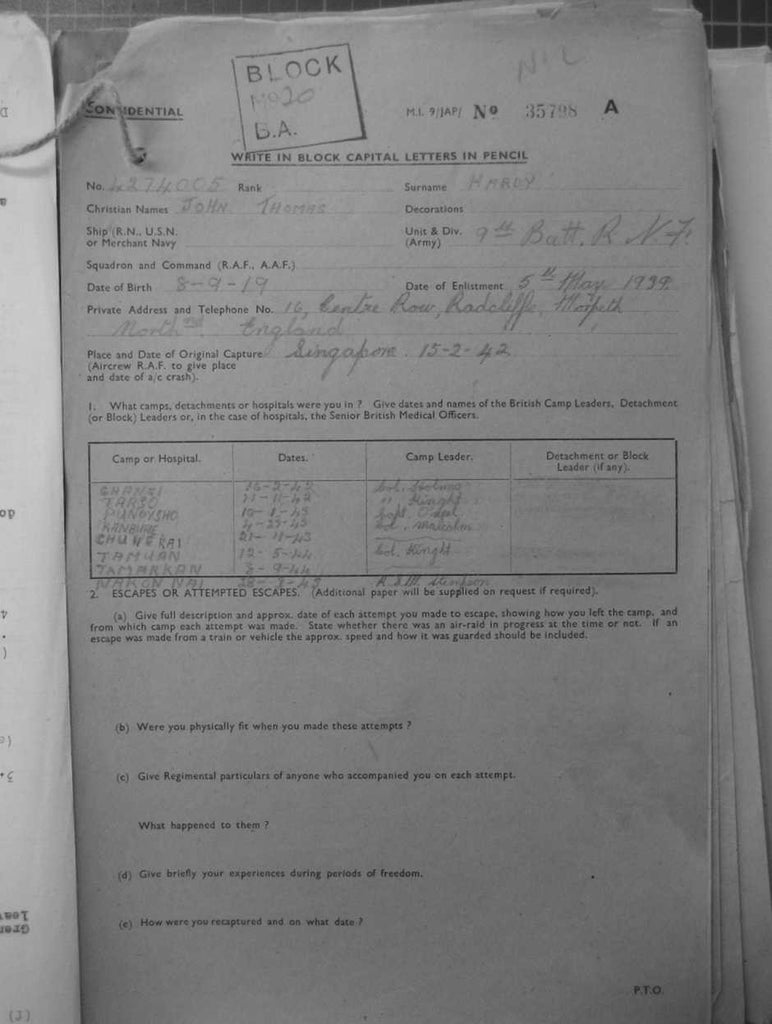 NIL
BLOCK
No 20
B.A.
CONFIDENTIAL
M.I. 9/JAP/ No 35798 A
WRITE IN BLOCK CAPITAL LETTERS IN PENCIL
No. 4274005 Rank Surname HARDY
Christian Names JOHN THOMAS Decorations
Ship (R.N., U.S.N. or Merchant Navy Unit & Div. (Army) 9th Batt. R.N.F.
Squadron and Command (R.A.F., A.A.F.)
Date of Birth 8-9-19 Date of Enlistment 5th May 1939.
Private Address and Telephone No. 16, Centre Row, Radcliffe, Morpeth
North England
Place and Date of Original Capture Singapore. 15-2-42
(Aircrew R.A.F. to give place
and date of a/c crash).
1. What camps, detachments or hospitals were you in ? Give dates and names of the British Camp Leaders, Detachment
(or Block) Leaders or, in the case of hospitals, the Senior British Medical Officers.
Camp or Hospital. Dates. Camp Leader. Detachment or Block Leader (if any).
CHANGI Col. Holmes
TARSO 11-11-42 " Knight
Capt.
Col. Malcolm
21-11-43
TAMUAN 12-5-44 Col. Knight
TAMARKAN 8-9-44
NAKON NAI R.S.M.
2. ESCAPES OR ATTEMPTED ESCAPES. (Additional paper will be supplied on request if required).
(a) Give full description and approx. date of each attempt you made to escape, showing how you left the camp, and
from which camp each attempt was made. State whether there was an air-raid in progress at the time or not. If an
escape was made from a train or vehicle the approx. speed and how it was guarded should be included.
(b) Were you physically fit when you made these attempts ?
(c) Give Regimental particulars of anyone who accompanied you on each attempt.
What happened to them ?
(d) Give briefly your experiences during periods of freedom.
(e) How were you recaptured and on what date ?
P.T.O.